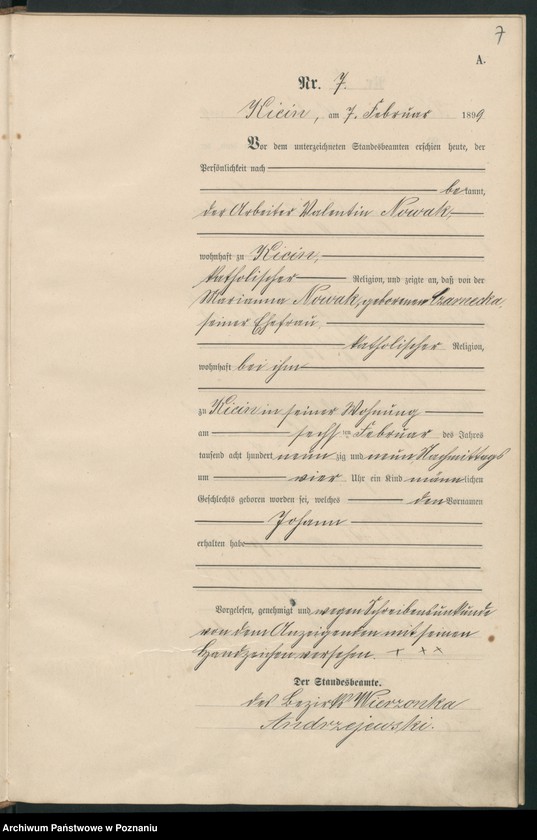 7
A.
Nr. 7.
Kicin, am 7. Februar 1899
Vor dem unterzeichneten Standesbeamten erschien heute, der
Persönlichkeit nach
bekannt,
der Arbeiter Valentin Nowak,
wohnhaft zu Kicin,
katholischer Religion, und zeigte an, daß von der
Marianna Nowak, geborenen Czarnecka,
seiner Ehefrau,
katholischer Religion,
wohnhaft bei ihm
zu Kicin in seiner Wohnung
am sechsten Februar des Jahres
tausend acht hundert neunzig und neun, Nachmittags
um vier Uhr ein Kind männlichen
Geschlechts geboren worden sei, welches den Vornamen
Johann
erhalten habe
Vorgelesen, genehmigt und wegen Schreibensunkunde
von dem Anzeigenden mit seinem
Handzeichen versehen. + ++
Der Standesbeamte.
des Bezirks Wierzonka
Andrzejewski.
Archiwum Państwowe w Poznaniu